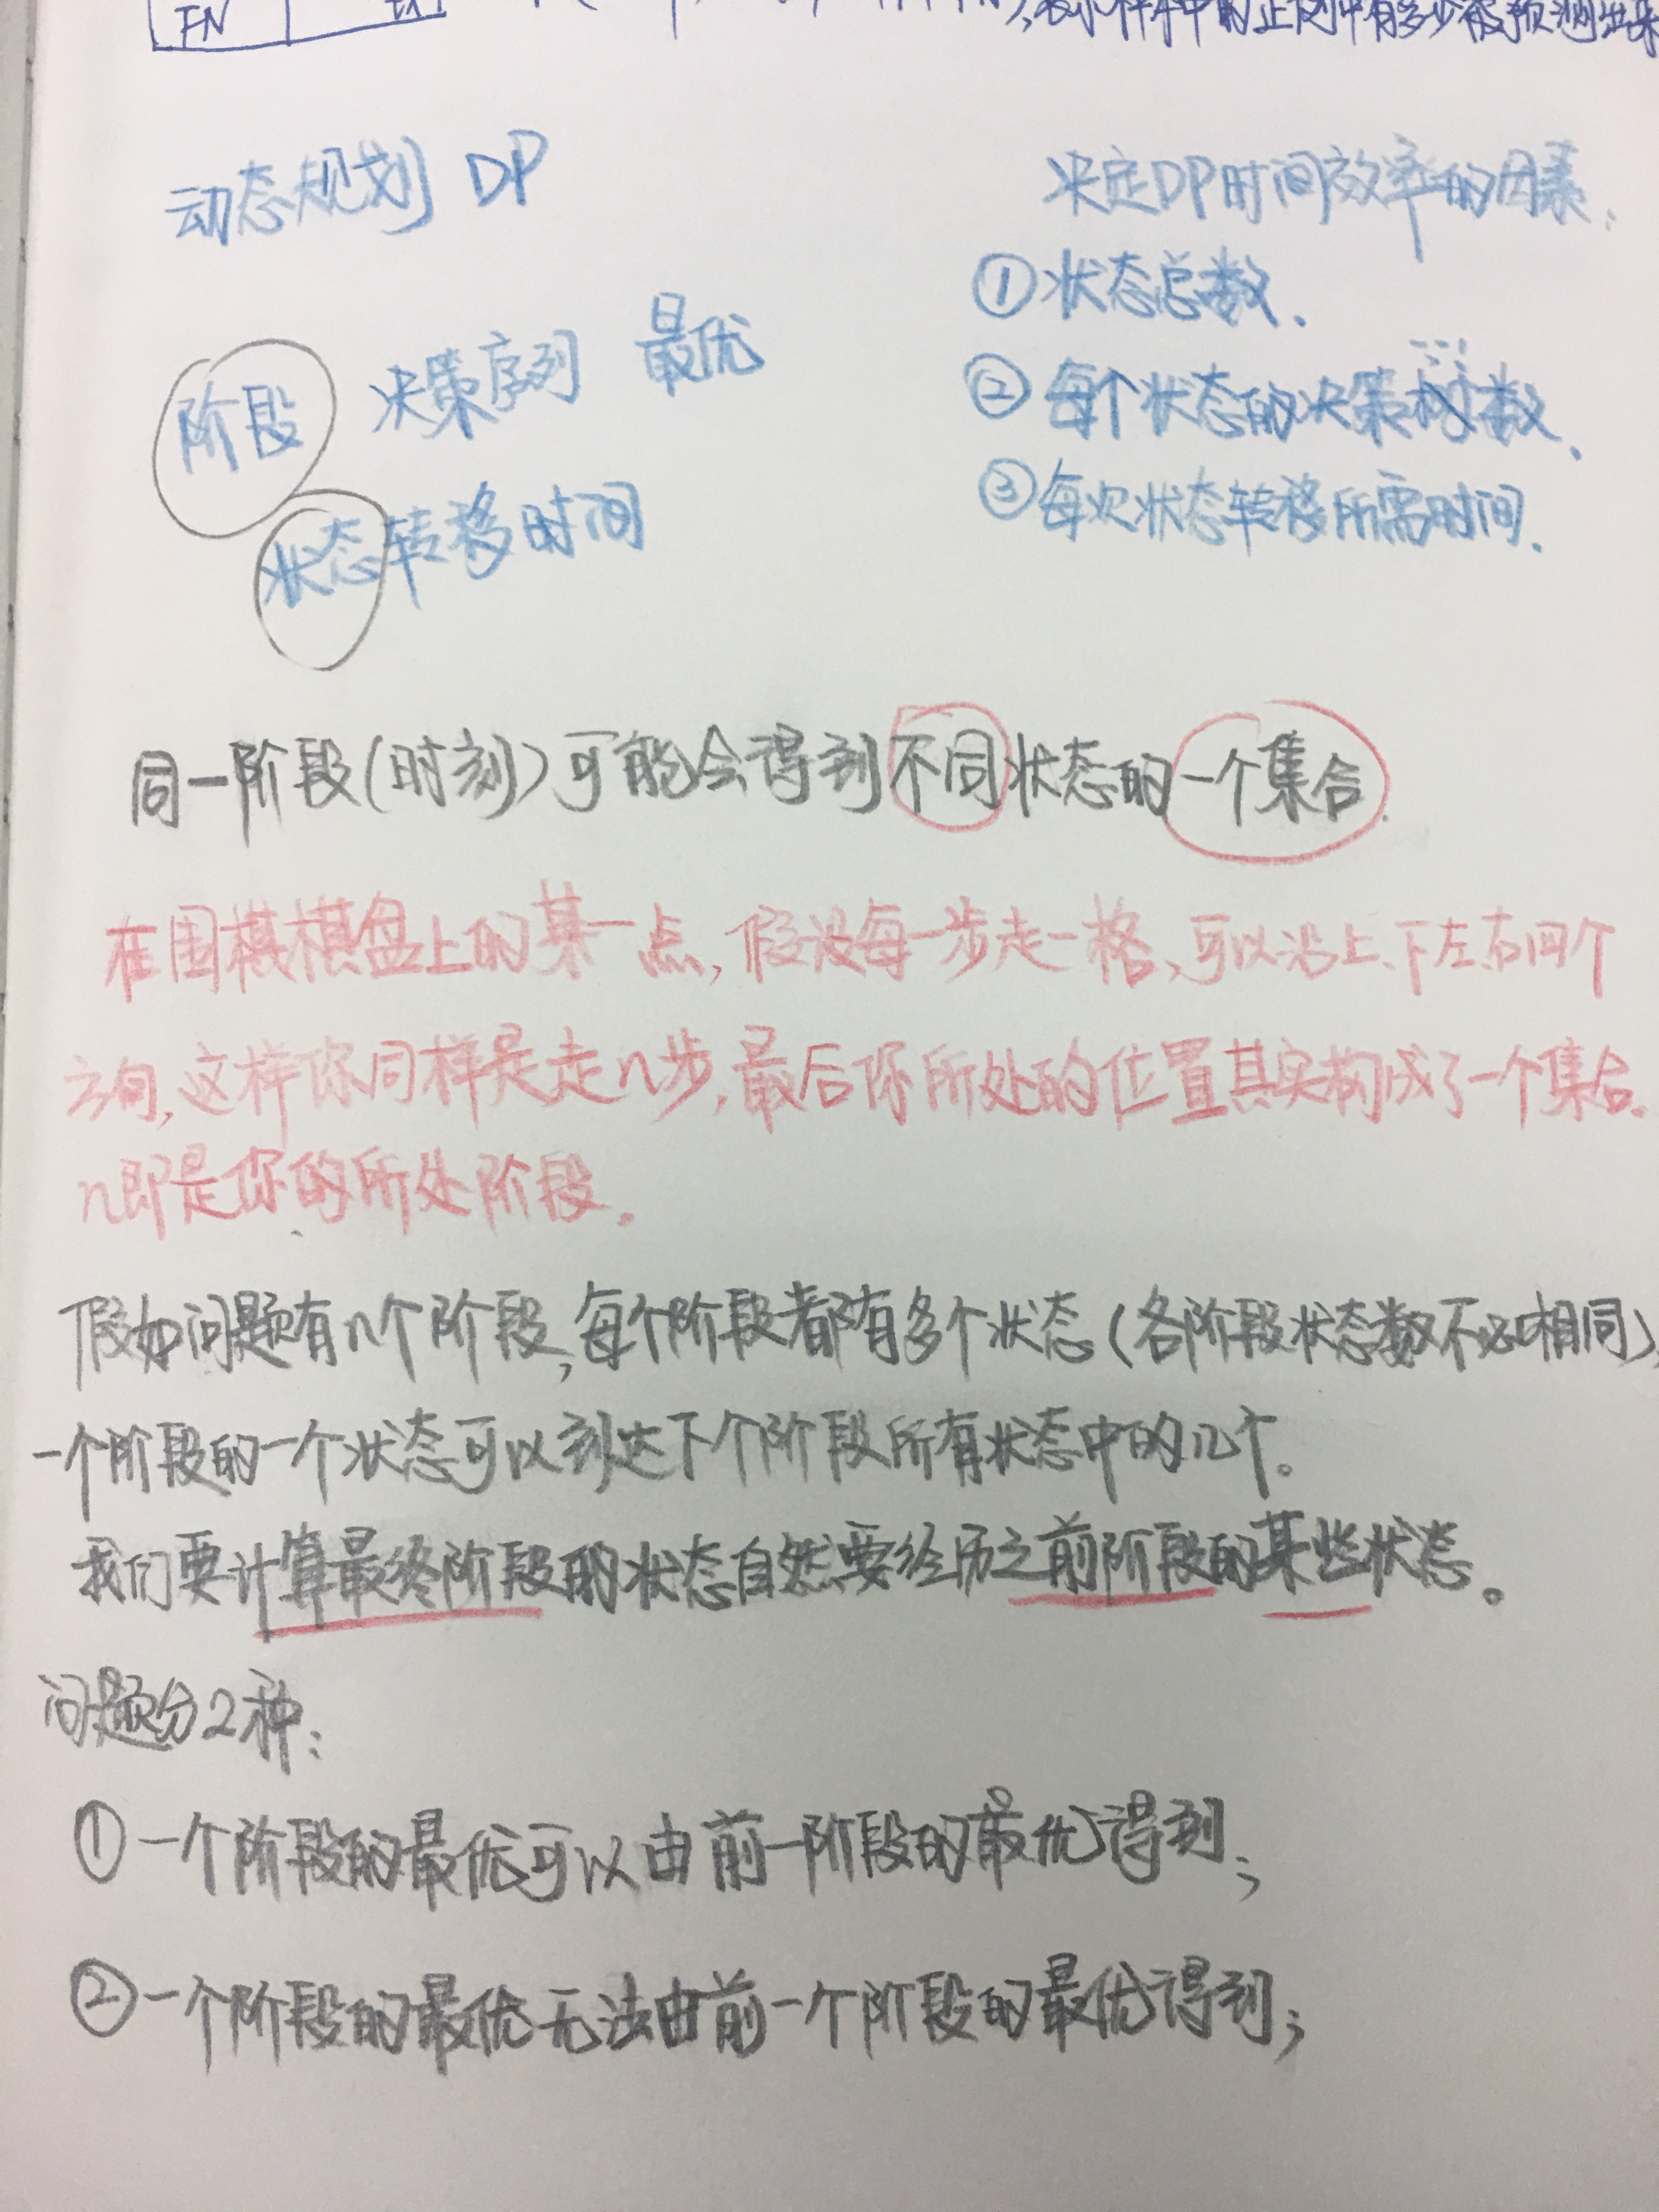 FN
表示样本中的正例中有多少被预测出来
动态规划 DP
阶段 决策序列 最优
状态转移时间
决定DP时间效率的因素:
①状态总数.
②每个状态的决策数.
③每次状态转移所需时间.
同一阶段(时刻)可能会得到不同状态的一个集合.
在围棋棋盘上的某一点,假设每一步走一格,可以沿上、下左右四个
方向,这样你同样是走n步,最后你所处的位置其实构成了一个集合.
n即是你的所处阶段.
假如问题有n个阶段,每个阶段都有多个状态(各阶段状态数不必相同),
一个阶段的一个状态可以到达下个阶段所有状态中的几个。
我们要计算最终阶段的状态自然要经历之前阶段的某些状态。
问题分2种:
①一个阶段的最优可以由前一阶段的最优得到;
②一个阶段的最优无法由前一个阶段的最优得到;